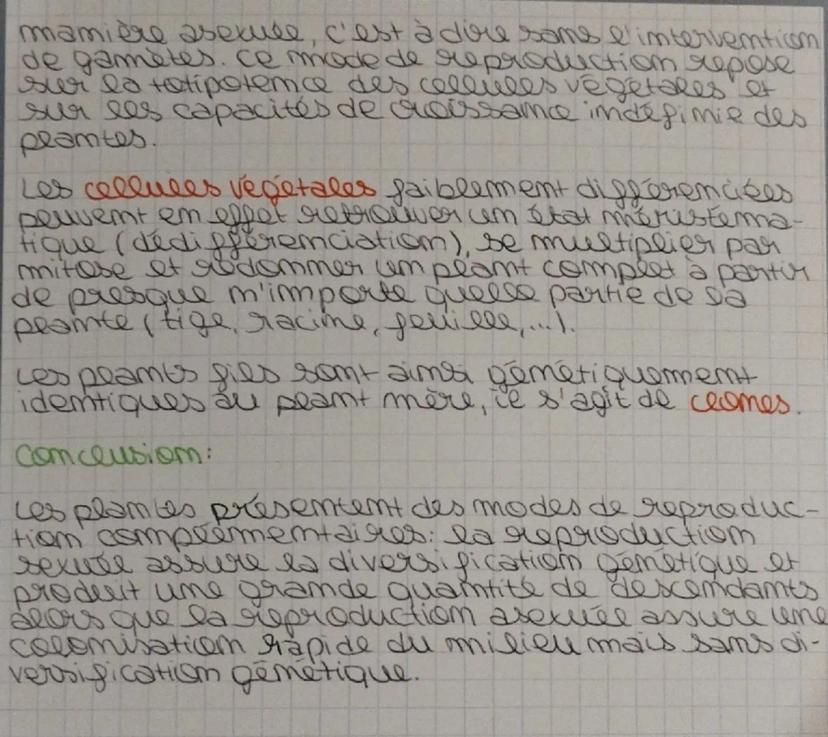 manière asexuée, c'est à dire sans l'intervention
de gamètes. Ce mode de reproduction repose
sur la totipotence des cellules végétales et
sur les capacités de croissance indéfinie des
plantes.
Les cellules végétales faiblement différenciées
peuvent en effet retrouver un état méristéma-
tique (dédifférenciation), se multiplier par
mitose et redonner un plant complet à partir
de presque n'importe quelle partie de la
plante (tige, racine, feuille, ...).
Les plants fils sont ainsi génétiquement
identiques au plant mère, il s'agit de clones.
Conclusion:
Les plantes présentent des modes de reproduc-
tion complémentaires: la reproduction
sexuée assure la diversification génétique et
produit une grande quantité de descendants
alors que la reproduction asexuée assure une
colonisation rapide du milieu mais sans di-
versification génétique.